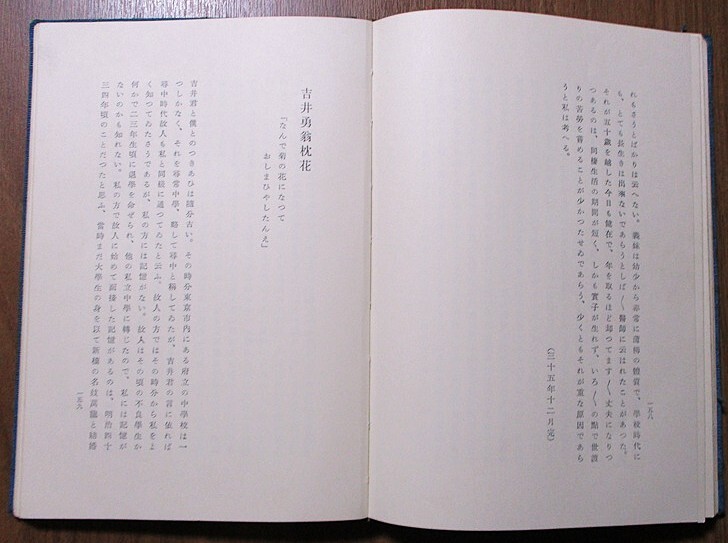 れもさうとばかりは云へない。義妹は幼少から非常に蒲柳の體質で、學校時代に
も、とても長生きは出來ないであらうとしば〳〵醫師に云はれたことがあつた。
それが五十歲を越した今日も健在で、年を取るほど却つてます〳〵丈夫になりつ
つあるのは、同棲生活の期間が短く、しかも實子が生れず、いろ〳〵の點で世話
りの苦勞を嘗めることが少かつたせゐであらう、少くともそれが重な原因であら
うと私は考へる。
（三十五年十二月完）
一五八
吉井勇翁枕花
「なんで菊の花になつて
おしまひやしたんえ」
吉井君と僕とのつきあひは隨分古い。その時分東京市內にある府立の中學校は一
つしかなく、それを尋常中學、略して尋中と稱してゐたが、吉井君の言に依れば
尋中時代故人も私と同樣に通つてゐたと云ふ。故人の方ではその時分から私をと
く知つてゐたさうであるが、私の方には記憶がない。故人はその頃の不良學生か
何かで二三年生頃に退學を命ぜられ、他の私立中學に轉じたので、私には記憶が
ないのかも知れない。私の方で故人に始めて面接した記憶があるのは、明治四十
三四年頃のことだつたと思ふ、當時まだ大學生の身を以て新橋の名妓萬龍と結婚
一五九